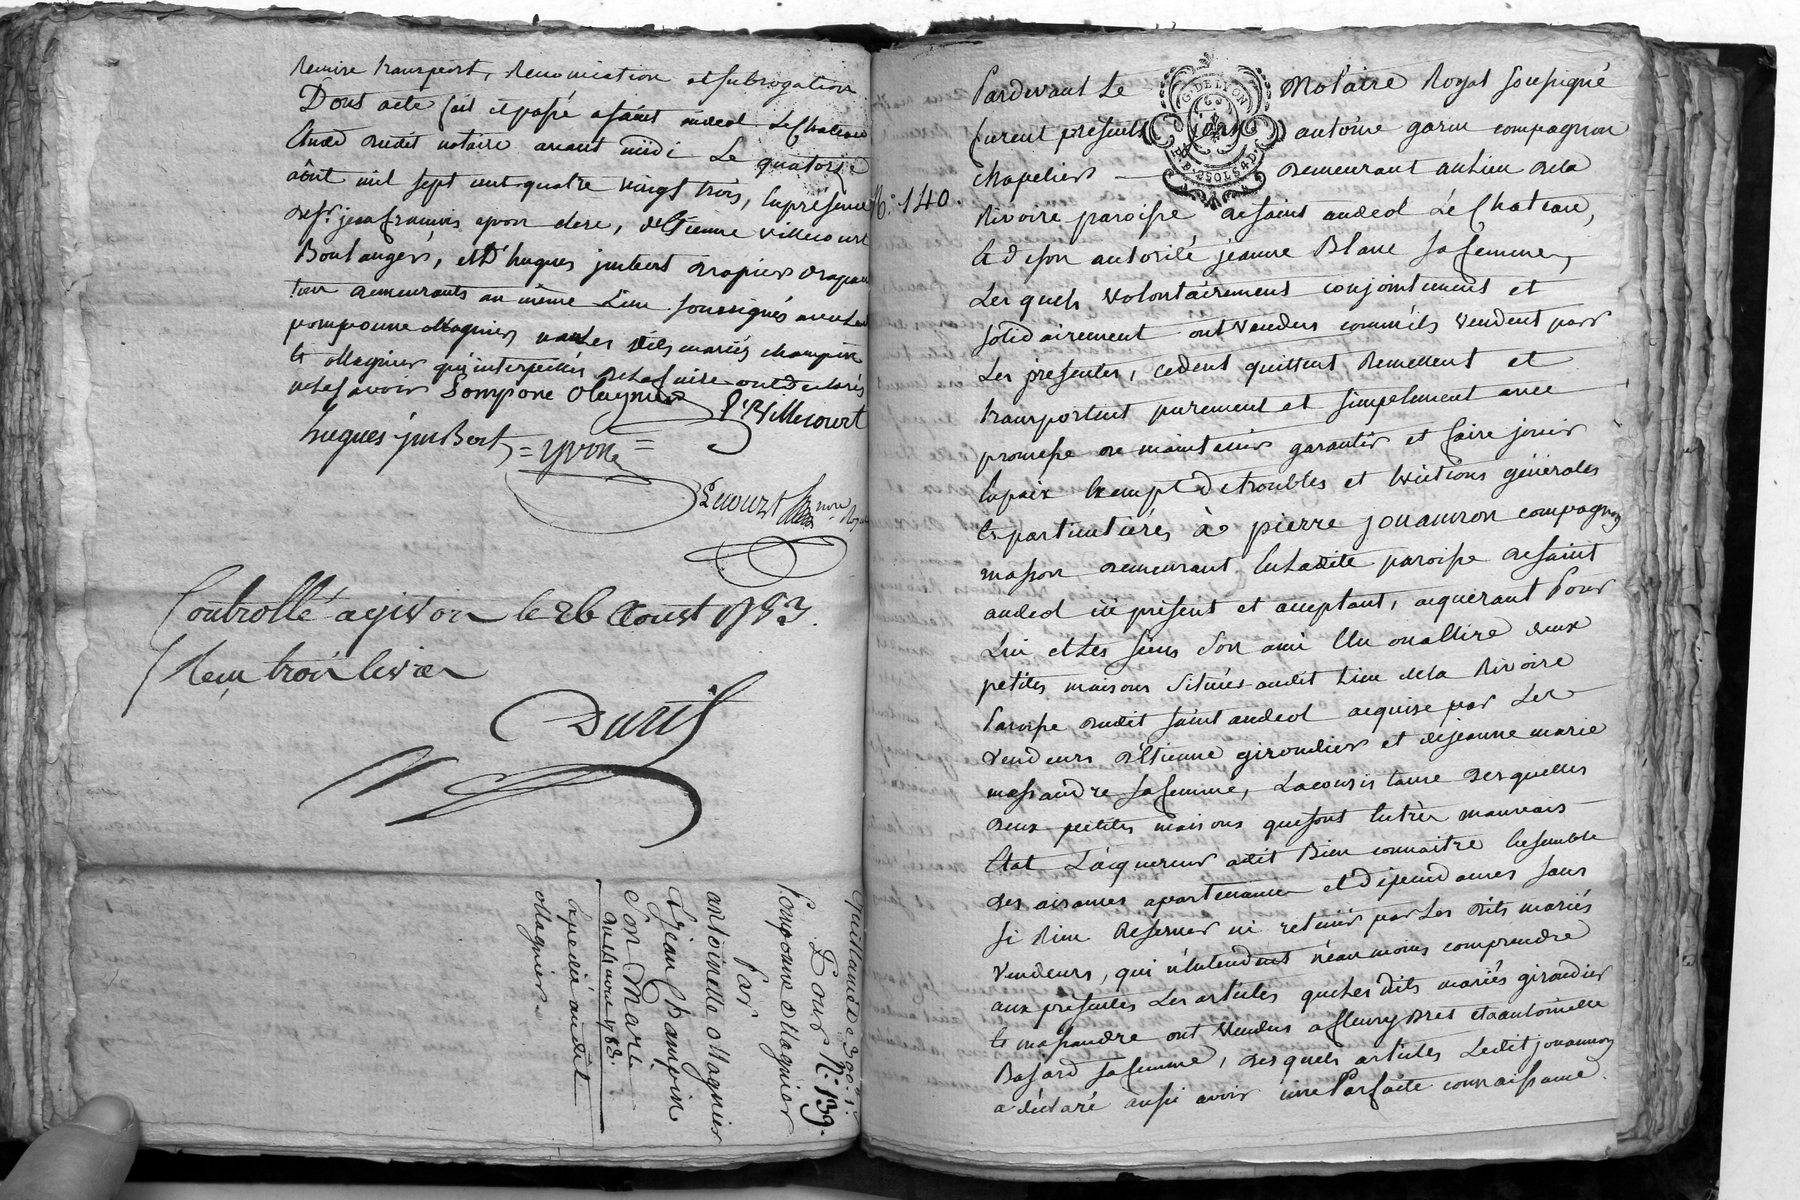 Remise transport, Renonciation et subrogation
Dont acte fait et passé a saint andeol Le Chateau
Etude dudit notaire avant midi Le quatorze
août mil sept cent quatre vingt trois, En presence
de sr. jean francois yvon clerc, d'Etienne Villecourt
Boulanger, et d'hugues jmbert drapier drapan
tier demeurants au même Lieu soussignés avec Led.
pomponne ollagnier non Les dits mariés champin
et ollagnier qui interpellés de le faire ont déclarés
ne le savoir Pompone Olagnier
E. Villecourt
hugues jmBert = yvon =
Lecourt nore. Royal
Controllé a givors le 26 Aoust 1783.
Recu trois livres
Duril
Quittance de 390.# 1.s
Pour N.o 139.
Pomponne ollagnier
Par
antoinette ollagnier
& jean Champin
Son Mari
du 14 aout 1783.
Expedié audit
ollagnier
Pardevant Le Notaire Royal soussigné
G. DE LYON
furent présents jean antoine garin compagnon
chapelier demeurant au Lieu de la
N.o 140.
Rivoire paroisse de saint andeol Le Chateau,
Et de son autorité jeanne Blanc sa femme,
Lesquels volontairement conjointement et
solidairement ont vendus comm'ils vendent par
Les presentes, cedent quittent Remettent et
transportent purement et simplement avec
promesse de maintenir garantir et faire jouir
En paix Exempt de troubles et Evictions générales
et particulières à pierre jouannon compagnon
masson demeurant En Ladite paroisse de saint
andeol ici présent et acceptant, acquerant Pour
Lui et Les siens son ami Elu ou a Elire deux
petites maisons situées audit Lieu de la Rivoire
Paroisse dudit saint andeol acquise par Les
vendeurs d'Etienne girondier et de jeanne marie
massandre sa femme, La consistance desquelles
deux petites maisons qui sont En très mauvais
Etat L'acquereur a dit Bien connaitre Ensemble
des aisances apartenances et dépendances sans
si Rien Reserver ni retenir par Les dits mariés
vendeurs, qui n'Entendent néanmoins comprendre
aux présentes Les articles que Les dits mariés girondier
et massandre ont vendus a fleury Bret et a antoinette
Basard sa femme, desquels articles Ledit jouannon
a déclaré aussi avoir une Parfaite connaissance.